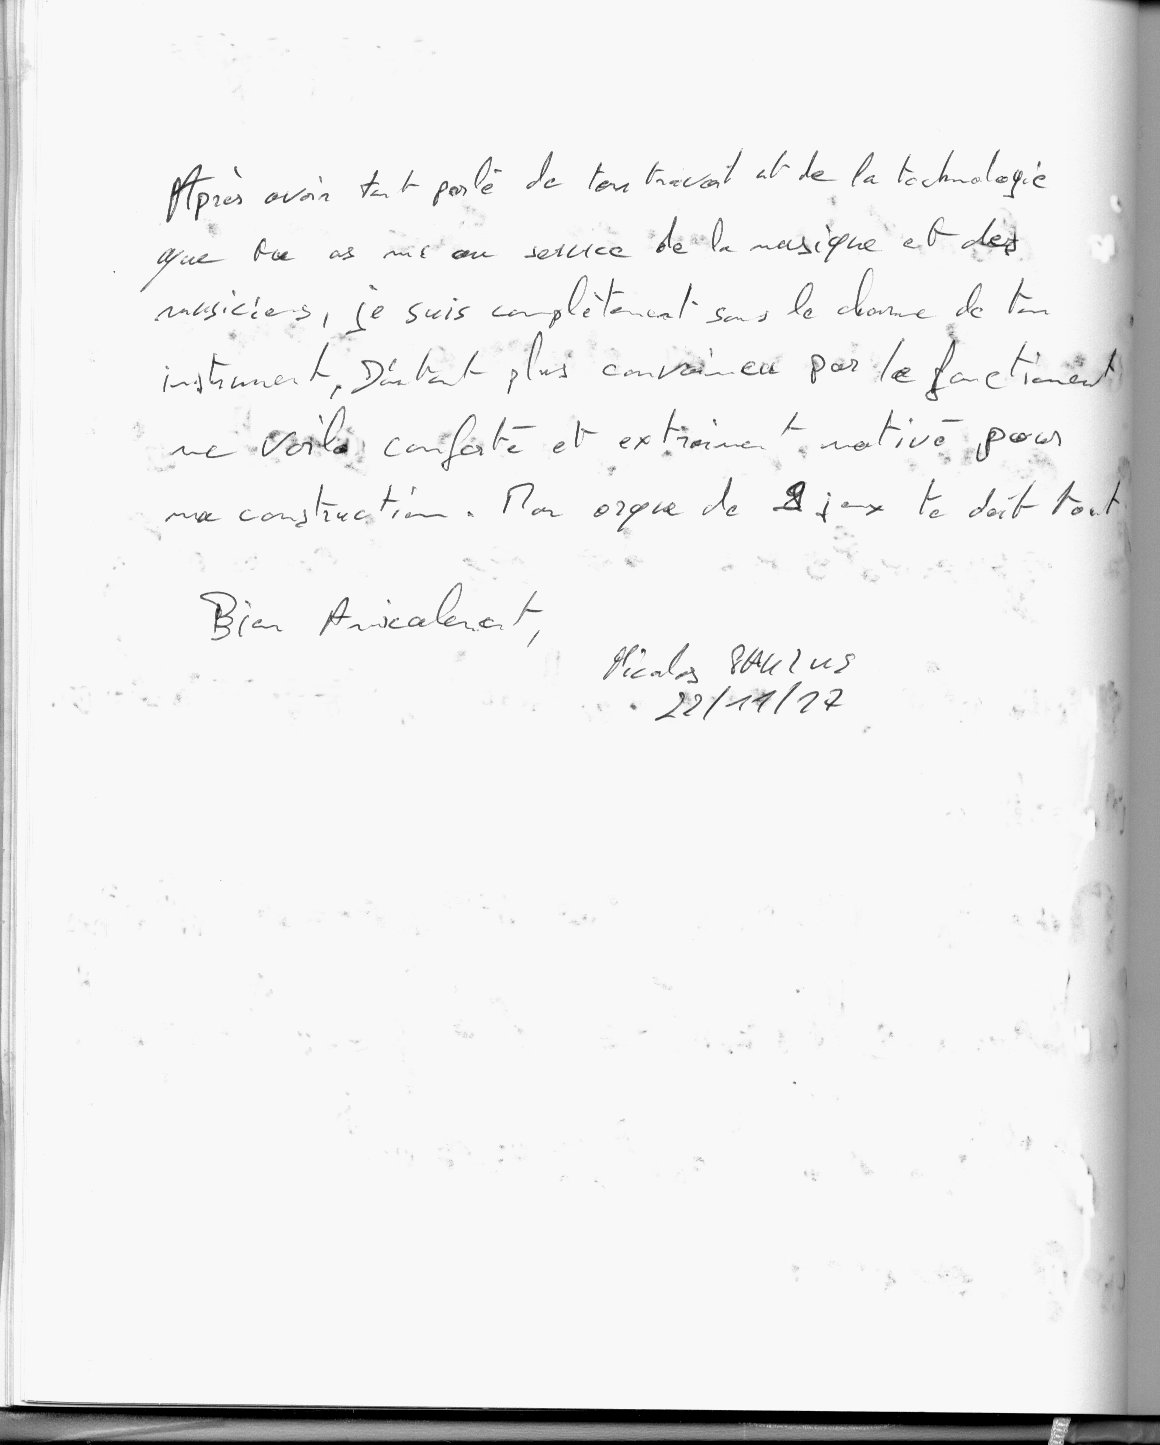 Après avoir tant parlé de ton travail et de la technologie
que tu as mis au service de la musique et des
musiciens, je suis complètement sous le charme de ton
instrument, D'autant plus convaincu par le fonctionement
me voilà conforté et extrêment motivé pour
ma construction. Mon orgue de 2 jeux te doit tout
Bien Amicalement,
Nicolas
22/11/17